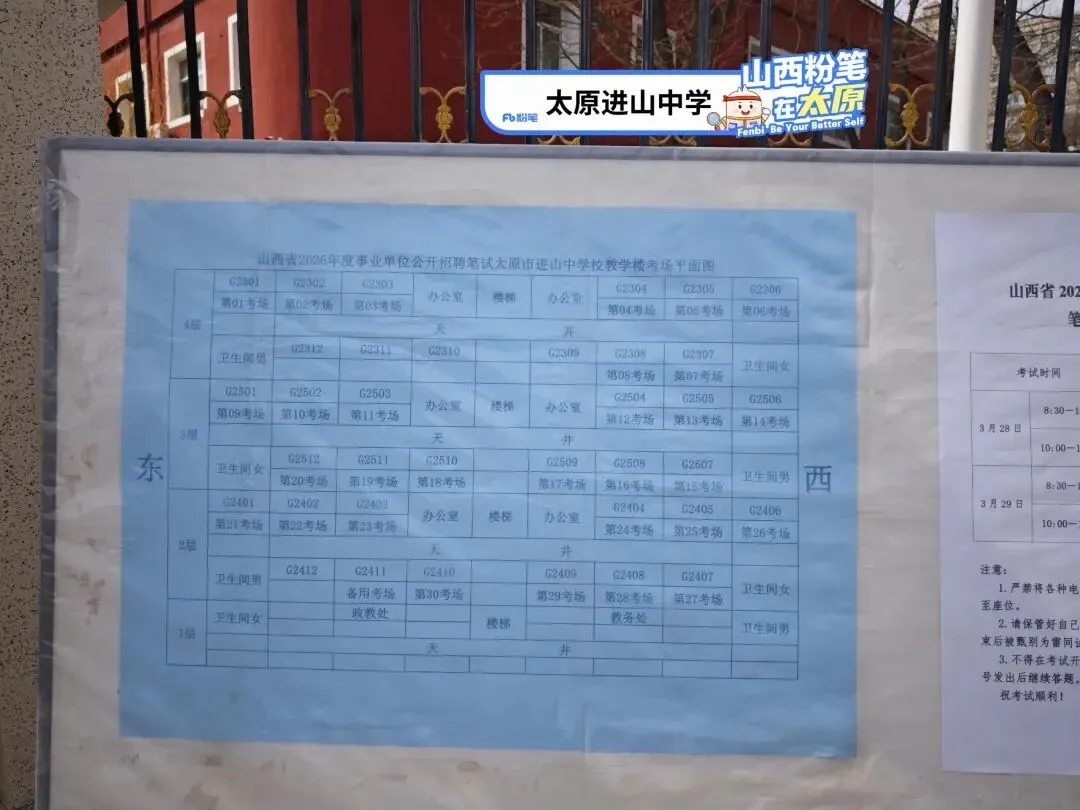 太原进山中学
Fb粉笔
山西粉笔
在太原
Fenbi Be Your Better Self
山西省2026年度事业单位公开招聘笔试太原市进山中学校教学楼考场平面图
东
西
4层
G2301 G2302 G2303 办公室 楼梯 办公室 G2304 G2305 G2306
第01考场 第02考场 第03考场 第04考场 第05考场 第06考场
天 井
卫生间男 G2312 G2311 G2310 G2309 G2308 G2307 卫生间女
第08考场 第07考场
3层
G2501 G2502 G2503 办公室 楼梯 办公室 G2504 G2505 G2506
第09考场 第10考场 第11考场 第12考场 第13考场 第14考场
天 井
卫生间女 G2512 G2511 G2510 G2509 G2508 G2507 卫生间男
第20考场 第19考场 第18考场 第17考场 第16考场 第15考场
2层
G2401 G2402 G2403 办公室 楼梯 办公室 G2404 G2405 G2406
第21考场 第22考场 第23考场 第24考场 第25考场 第26考场
天 井
卫生间男 G2412 G2411 G2410 G2409 G2408 G2407 卫生间女
备用考场 第30考场 第29考场 第28考场 第27考场
1层
卫生间女 政教处 楼梯 教务处 卫生间男
天 井
山西省 202
笔
考试时间
3月28日 8:30—1
10:00—1
3月29日 8:30—1
10:00—1
注意：
1. 严禁将各种电
至座位。
2. 请保管好自己
束后被甄别为雷同试
3. 不得在考试开
号发出后继续答题。
祝考试顺利！